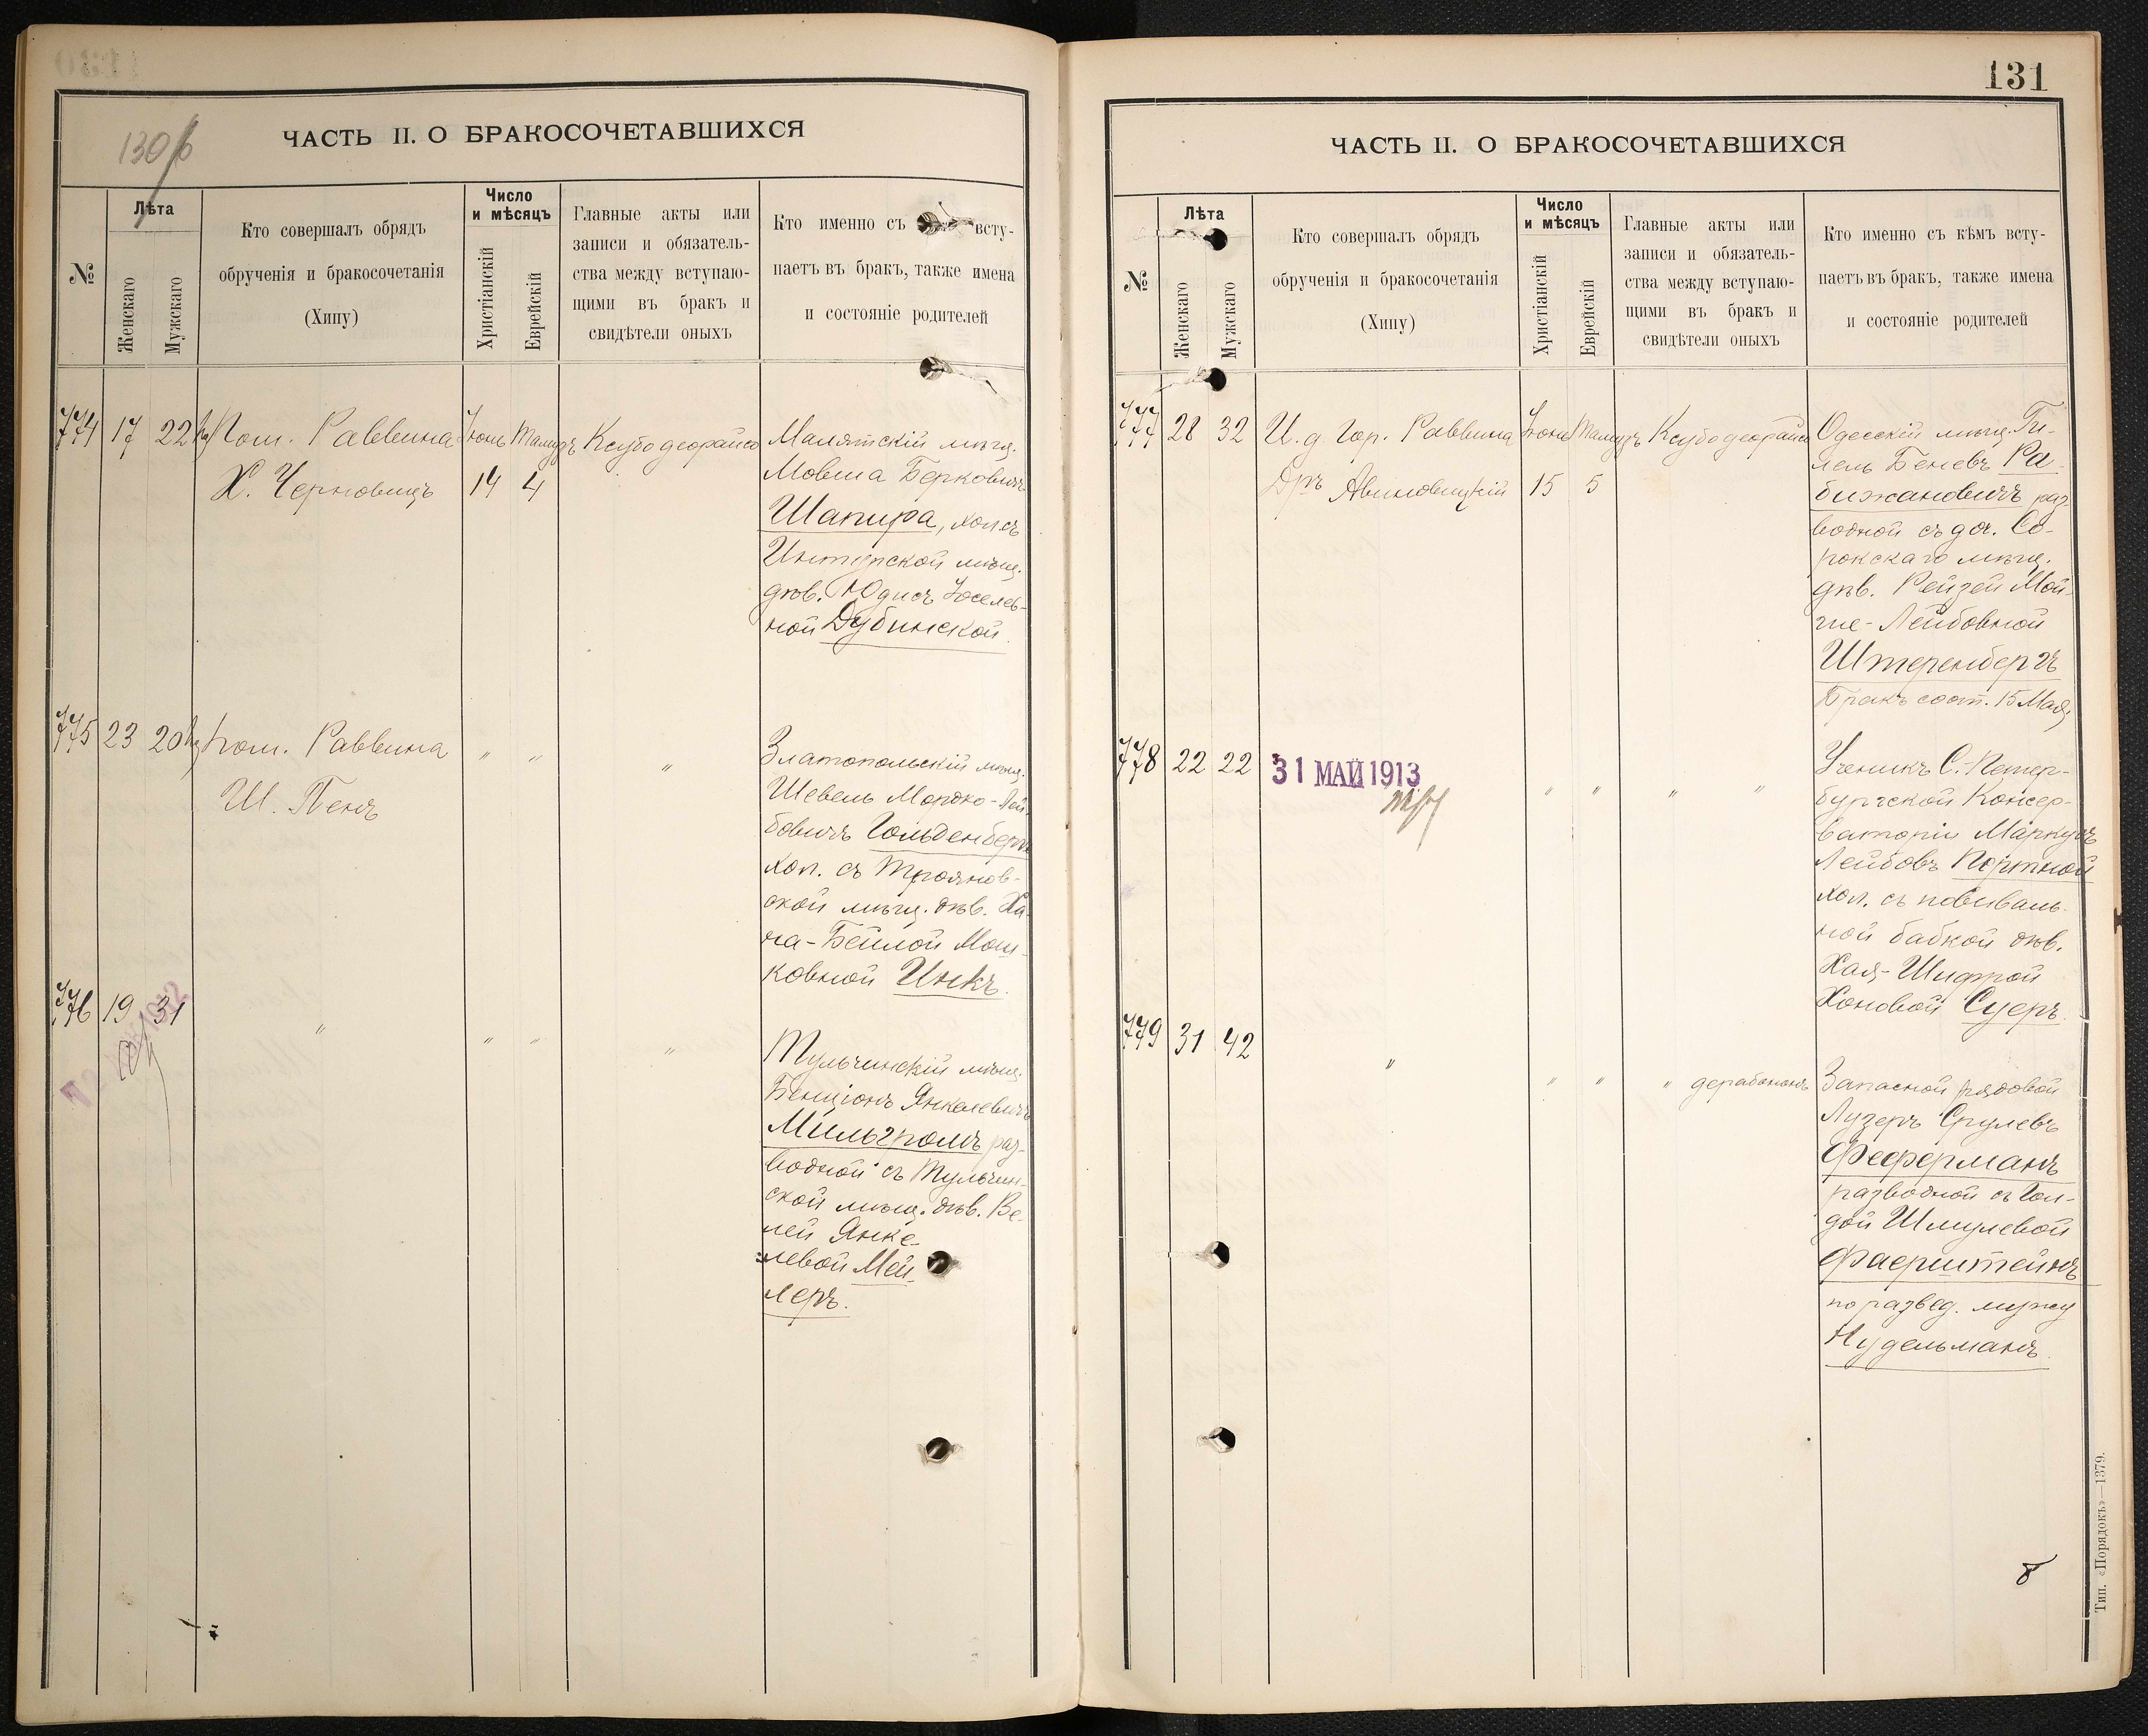 130 б
ЧАСТЬ II. О БРАКОСОЧЕТАВШИХСЯ
№
Лѣта
Женскаго
Мужскаго
Кто совершалъ обрядъ
обрученія и бракосочетанія
(Хипу)
Число
и мѣсяцъ
Христіанскій
Еврейскій
Главные акты или
записи и обязатель-
ства между вступаю-
щими въ бракъ и
свидѣтели оныхъ
Кто именно съ всту-
паетъ въ бракъ, также имена
и состояніе родителей
774 17 22 Пом. Раввина Іюнь Тамузъ Ксубо деорайсо
Х. Черновицъ 14 4
Малятскій мѣщ.
Мовша Берковичъ
Шапира, хол. съ
Интурской мѣщ.
дѣв. Юдисъ Іоселев-
ной Дубинской.
775 23 20 Пом. Раввина " " "
Ш. Пенъ
Златопольскій мѣщ.
Шевель Мордко-Лей-
бовичъ Гольденбергъ
хол. съ Троянов-
ской мѣщ. дѣв. Ха-
на-Бейлой Мош-
ковной Инкъ.
776 19 31 " " " "
Тульчинскій мѣщ.
Бенціонъ Янкелевичъ
Мильгромъ раз-
водной съ Тульчин-
ской мѣщ. дѣв. Ве-
лей Янке-
левой Мей-
леръ.
131
ЧАСТЬ II. О БРАКОСОЧЕТАВШИХСЯ
№
Лѣта
Женскаго
Мужскаго
Кто совершалъ обрядъ
обрученія и бракосочетанія
(Хипу)
Число
и мѣсяцъ
Христіанскій
Еврейскій
Главные акты или
записи и обязатель-
ства между вступаю-
щими въ бракъ и
свидѣтели оныхъ
Кто именно съ кѣмъ всту-
паетъ въ бракъ, также имена
и состояніе родителей
777 28 32 И. д. Гор. Раввина Іюнь Тамузъ Ксубо деорайсо
Дръ Авиновицкій 15 5
Одесскій мѣщ. Ги-
лель Беневъ Ра-
бижановичъ раз-
водной съ доч. Со-
рокскаго мѣщ.
дѣв. Рейзей Мой-
ше-Лейбовной
Штеренбергъ
Бракъ сост. 15 Мая
778 22 22 31 МАЙ 1913 " " " "
Ученикъ С.-Петер-
бургской Консер-
ваторіи Маркусъ
Лейбовъ Портной
хол. съ повиваль-
ной бабкой дѣв.
Хая-Шифрой
Хоновой Суеръ.
779 31 42 " " " " дерабононъ
Запасной рядовой
Лузеръ Срулевъ
Феферманъ
разводной съ Гол-
дой Шмулевой
Фаерштейнъ
по развед. мужу
Нудельманъ.
Тип. «Порядокъ»—1379.